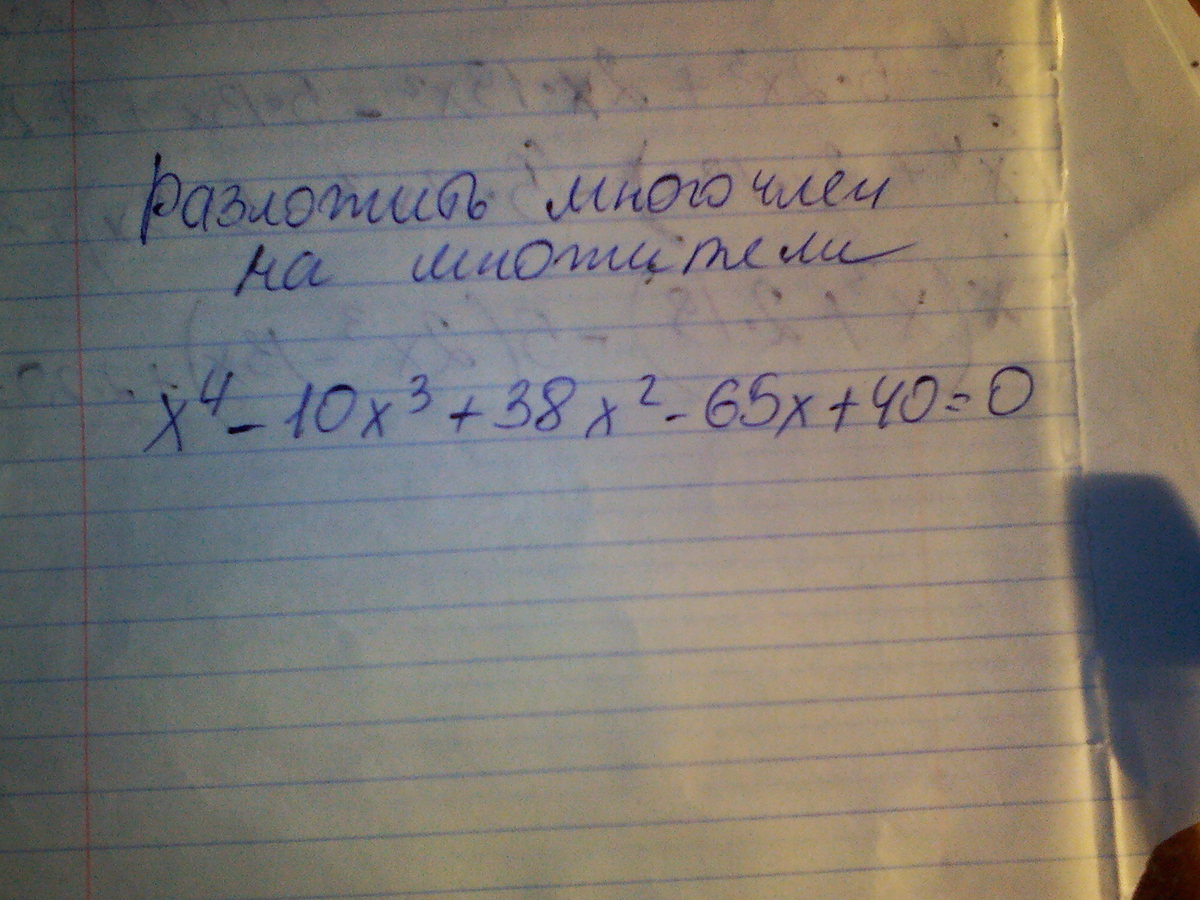 Разложить многочлен
на множители
x⁴ - 10x³ + 38x² - 65x + 40 = 0